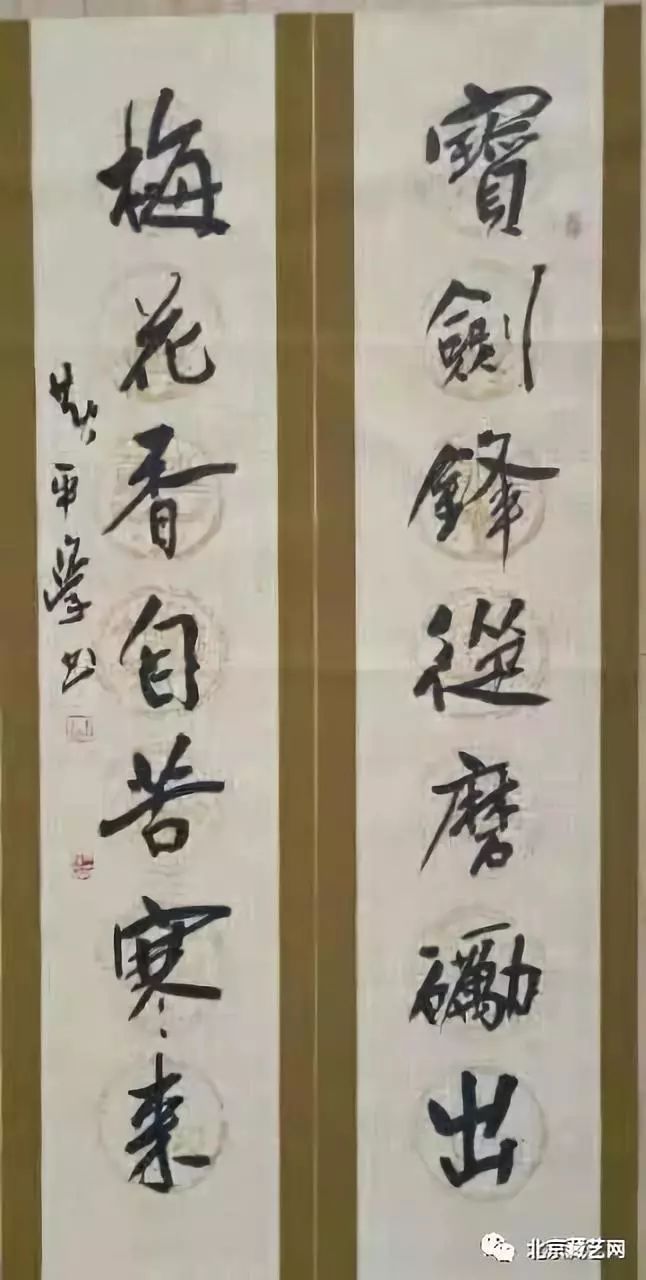 寶劍鋒從磨礪出
梅花香自苦寒来
书
北京藏艺网